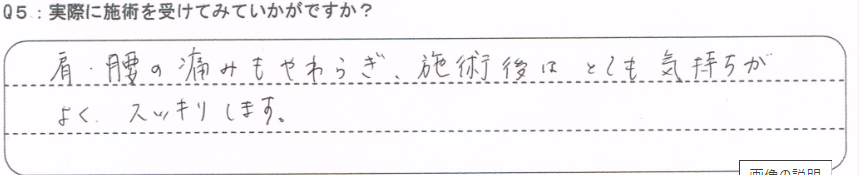 Q5：実際に施術を受けてみていかがですか？
肩・腰の痛みもやわらぎ、施術後はとても気持ちが
よく、スッキリします。
画像の説明